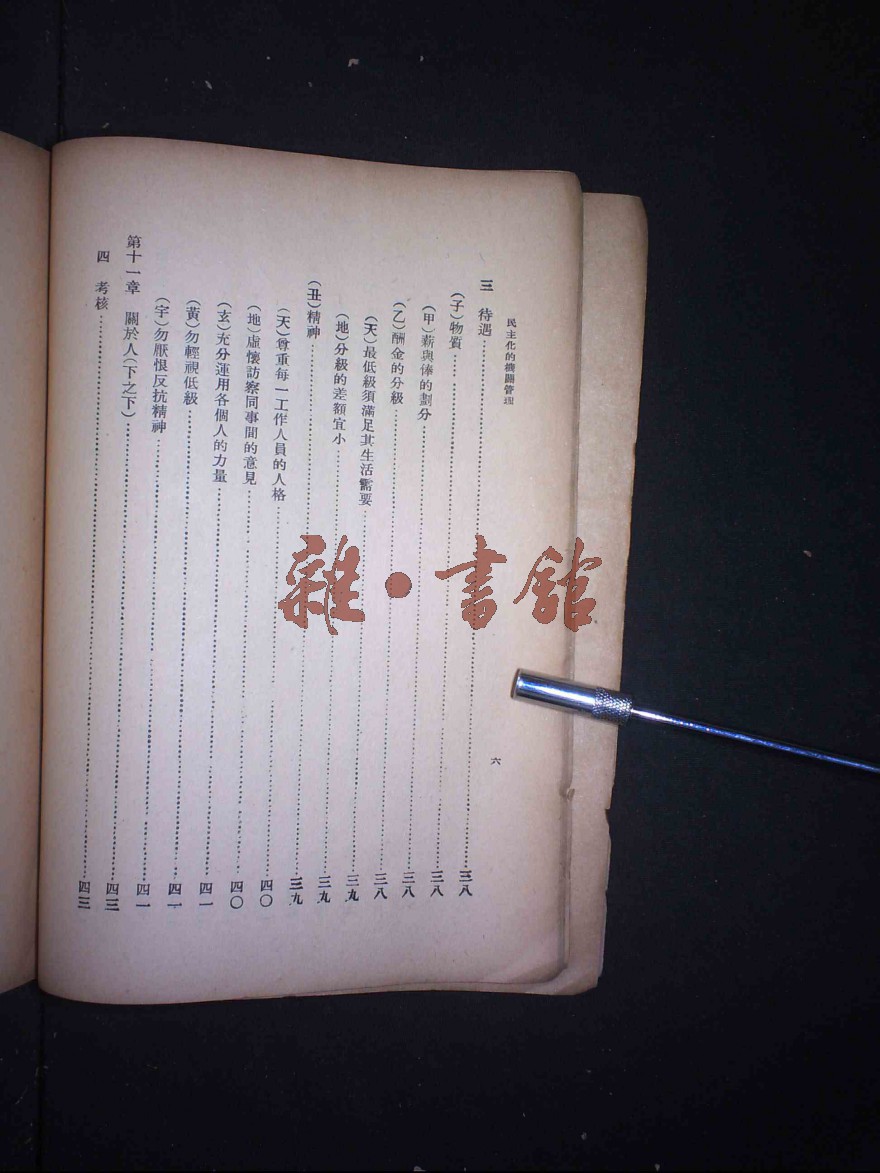 民主化的機關管理
六
三 待遇……三八
(子)物質……三八
(甲)薪與俸的劃分……三八
(乙)酬金的分級……三八
(天)最低級須滿足其生活需要……三九
(地)分級的差額宜小……三九
(丑)精神……三九
(天)尊重每一工作人員的人格……四〇
(地)虛懷訪察同事間的意見……四〇
(玄)充分運用各個人的力量……四一
(黃)勿輕視低級……四一
(宇)勿厭恨反抗精神……四一
第十一章 關於人(下之下)……四三
四 考核……四三
雜·書館